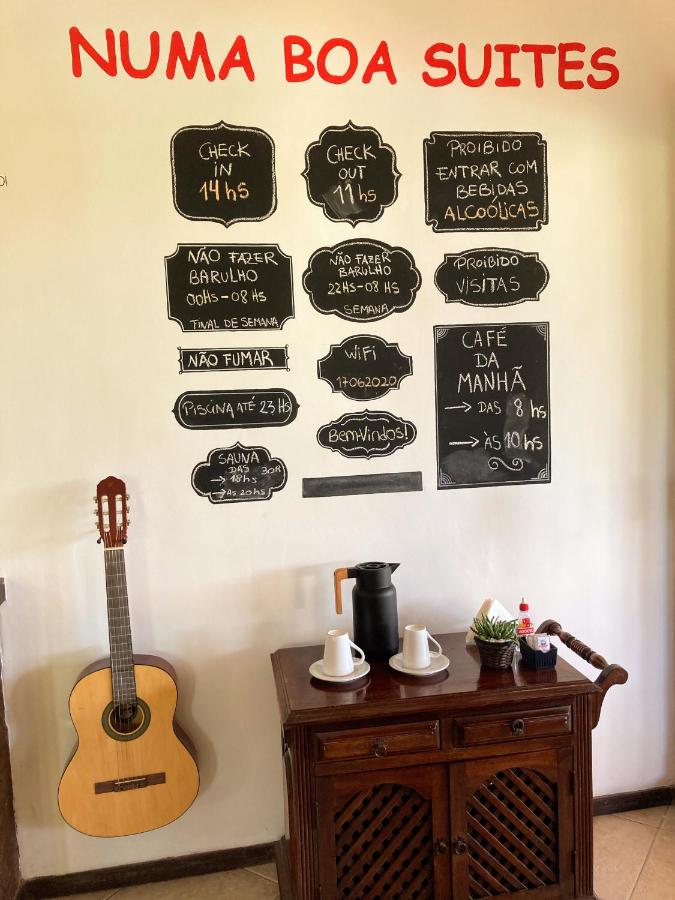 NUMA BOA SUITES
CHECK
IN
14 hs
CHECK
OUT
11 hs
PROIBIDO
ENTRAR COM
BEBIDAS
ALCOÓLICAS
NÃO FAZER
BARULHO
00HS-08 HS
FINAL DE SEMANA
NÃO FAZER
BARULHO
22HS-08 HS
SEMANA
PROIBIDO
VISITAS
NÃO FUMAR
WiFi
17062020
CAFÉ
DA
MANHÃ
→ DAS 8 hs
→ ÀS 10 hs
PISCINA ATÉ 23 HS
BEM-VINDOS!
SAUNA
DAS 30R
→ 18hs
→ AS 20hs